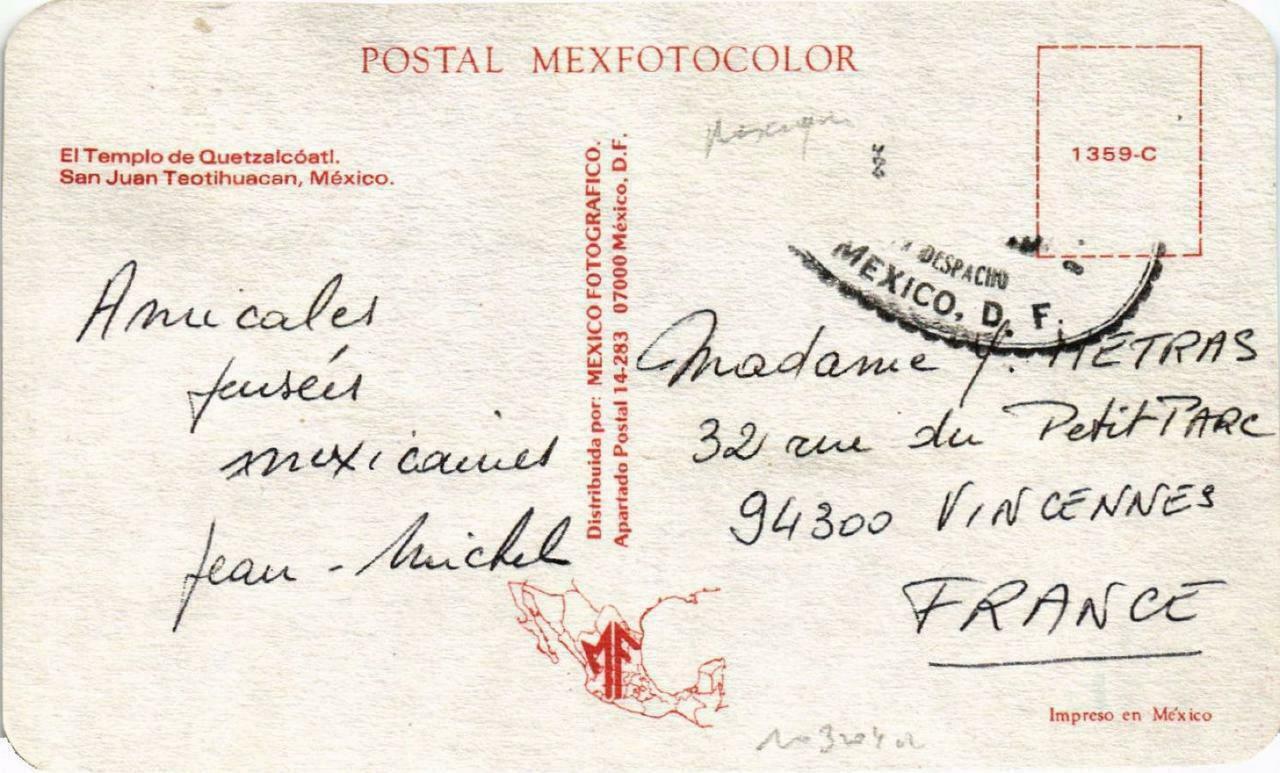 POSTAL MEXFOTOCOLOR
El Templo de Quetzalcóatl.
San Juan Teotihuacan, México.
Amicales
pensées
mexicaines
Jean-Michel
Distribuida por: MEXICO FOTOGRAFICO.
Apartado Postal 14-283 07000 México, D.F.
MF
1359-C
DESPACHO
MEXICO, D. F.
Madame Y. METRAS
32 rue du Petit PARC
94300 VINCENNES
FRANCE
Impreso en México